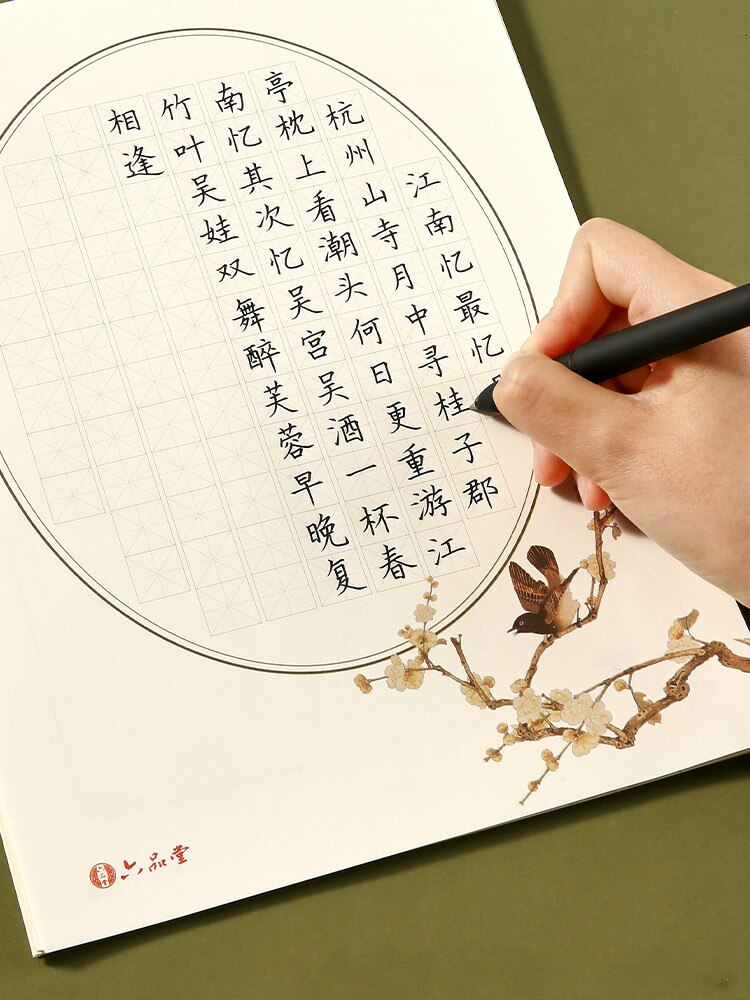 江南忆最忆
杭州山寺月中寻桂子郡
亭枕上看潮头何日更重游江
南忆其次忆吴宫吴酒一杯春
竹叶吴娃双舞醉芙蓉早晚复
相逢
六品堂